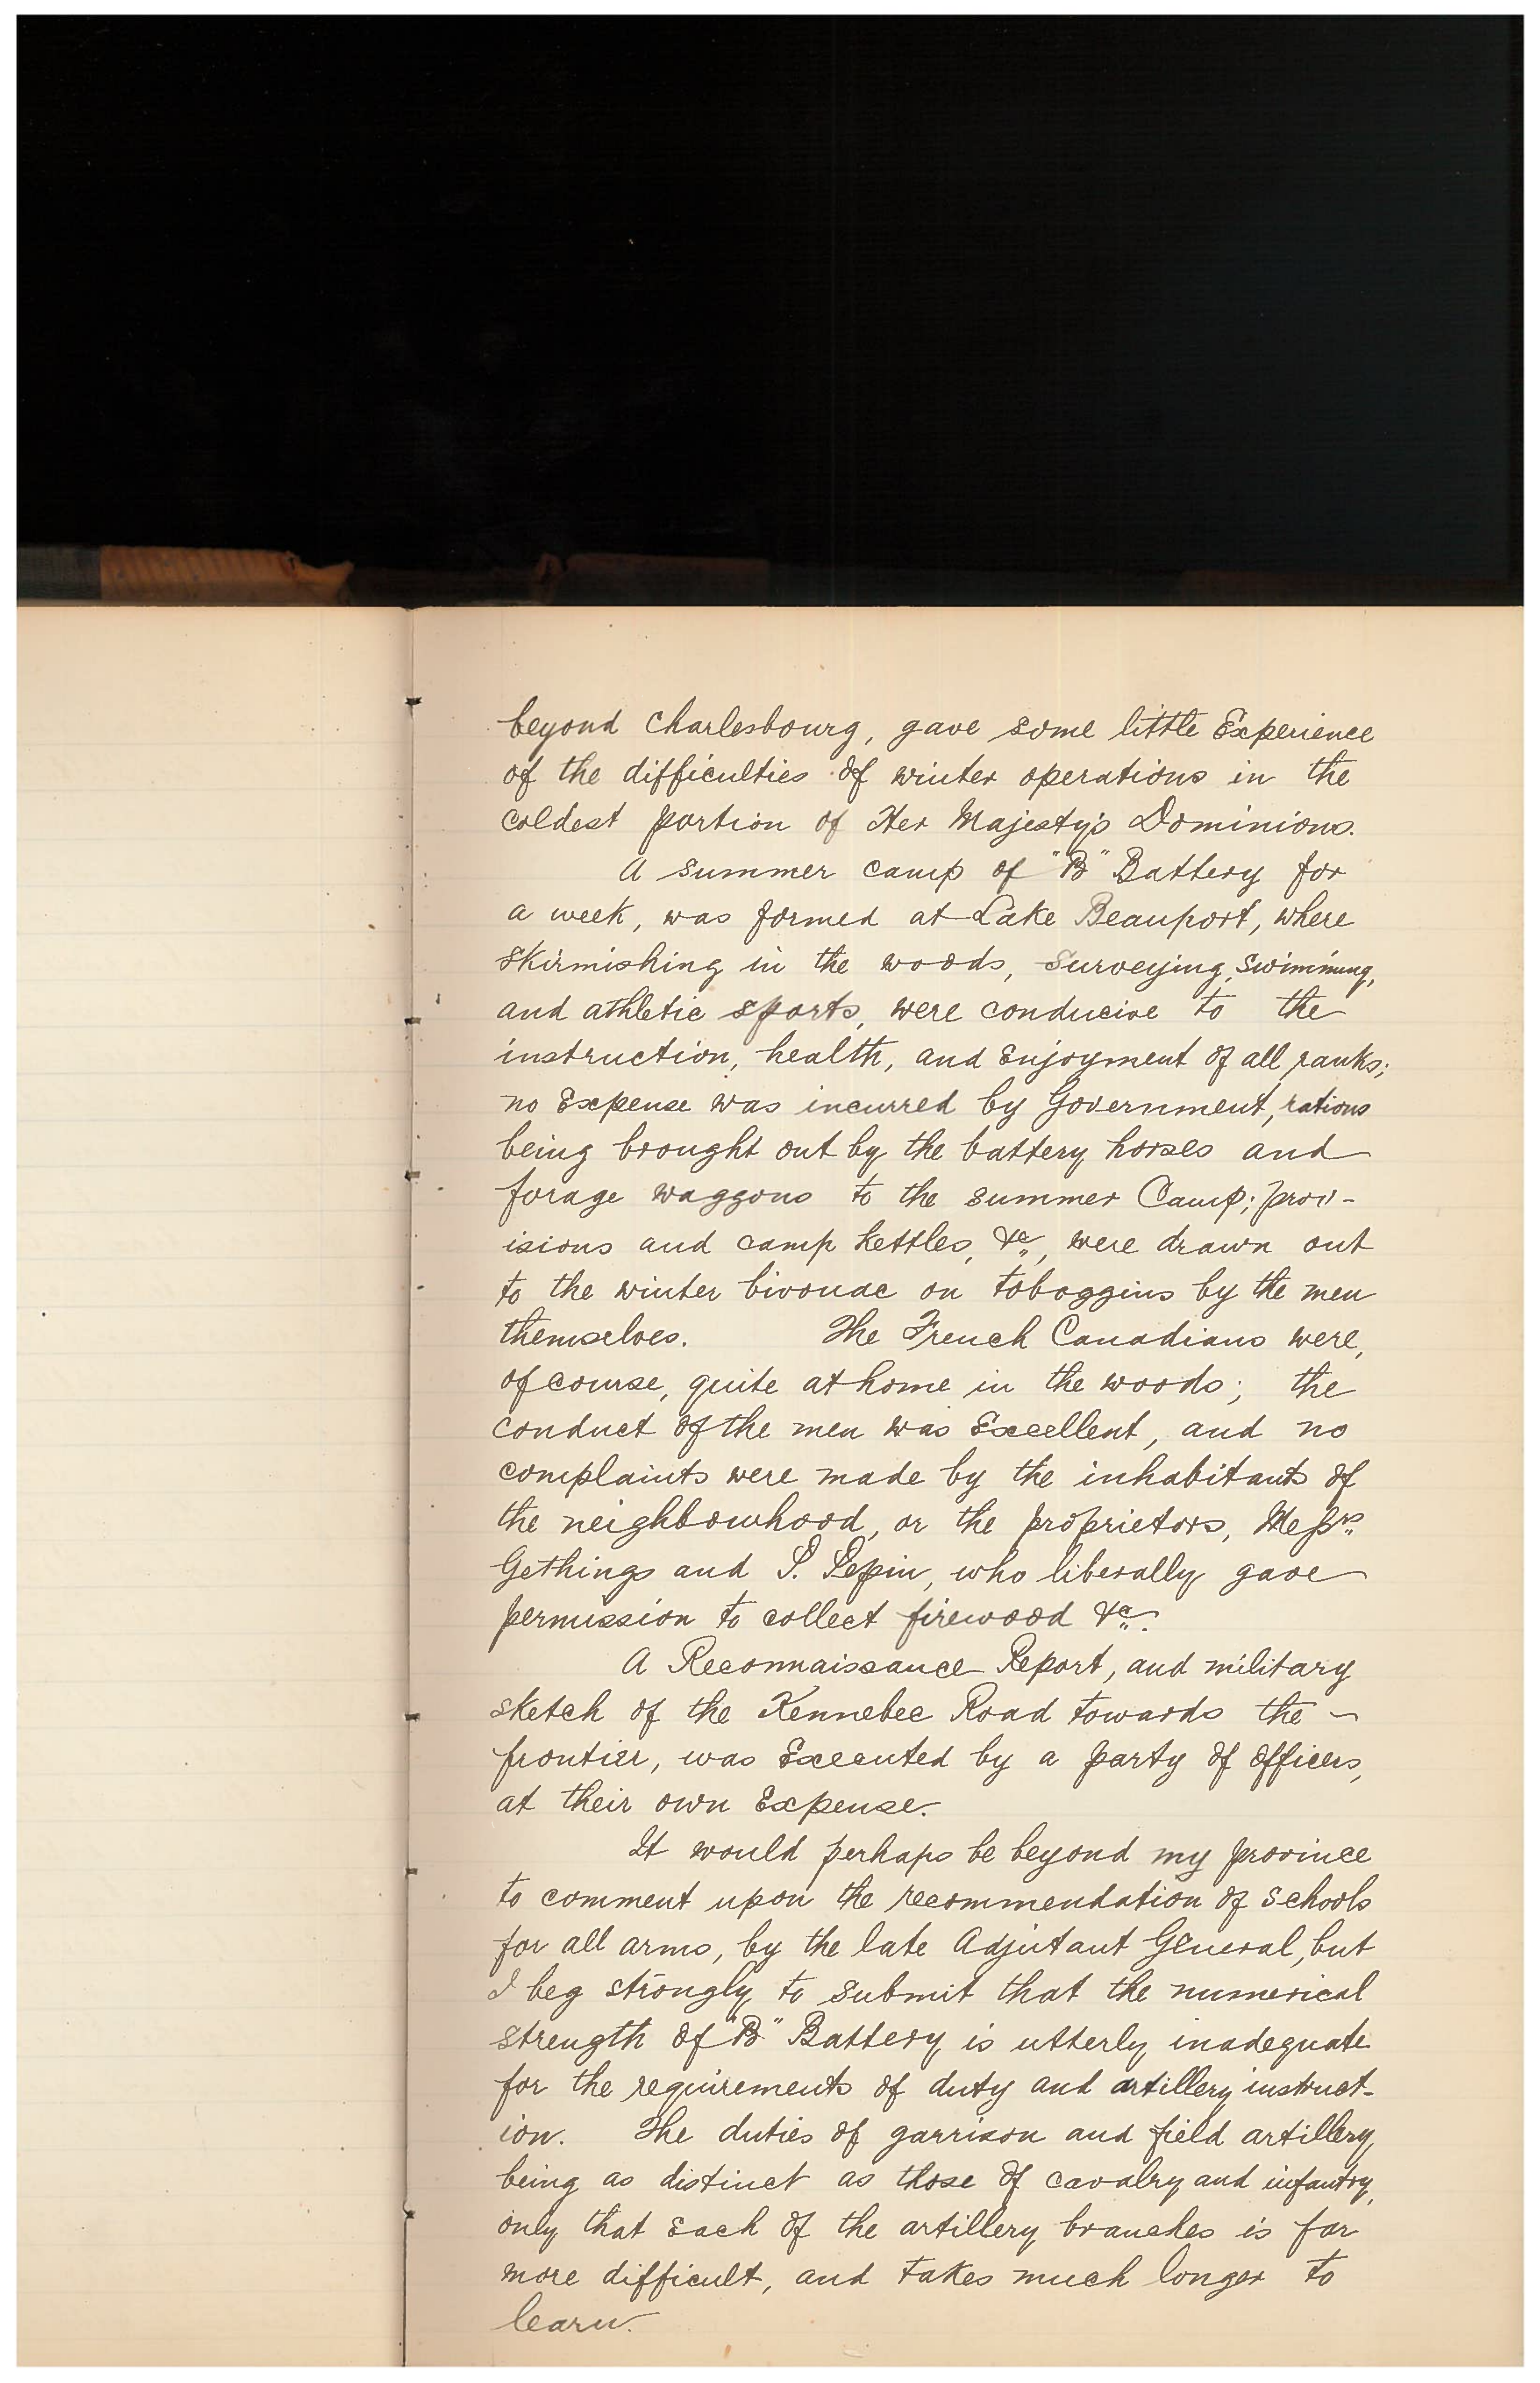 beyond Charlesbourg, gave some little Experience
of the difficulties of winter operations in the
coldest portion of Her Majesty's Dominions.
A summer camp of "B" Battery for
a week, was formed at Lake Beauport, where
skirmishing in the woods, surveying, swimming,
and athletic sports, were conducive to the
instruction, health, and Enjoyment of all ranks;
no Expense was incurred by Government, rations
being brought out by the battery horses and
forage waggons to the summer Camp; prov-
isions and camp kettles, &c., were drawn out
to the winter bivouac on toboggins by the men
themselves. The French Canadians were,
of course, quite at home in the woods; the
conduct of the men was Excellent, and no
complaints were made by the inhabitants of
the neighbourhood, or the proprietors, Messrs
Gethings and S. Lepin, who liberally gave
permission to collect firewood &c.
A Reconnaissance Report, and military
sketch of the Kennebec Road towards the
frontier, was Executed by a party of officers,
at their own Expense.
It would perhaps be beyond my province
to comment upon the recommendation of schools
for all arms, by the late Adjutant General, but
I beg strongly to submit that the numerical
strength of "B" Battery is utterly inadequate
for the requirements of duty and artillery instruct-
ion. The duties of garrison and field artillery
being as distinct as those of cavalry and infantry,
only that Each of the artillery branches is far
more difficult, and takes much longer to
learn.